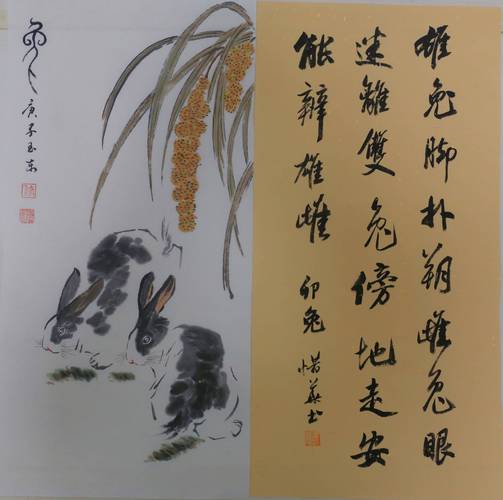 雄兔脚扑朔雌兔眼
迷離雙兔傍地走安
能辨雄雌
卯兔 惜華书
庚子玉东